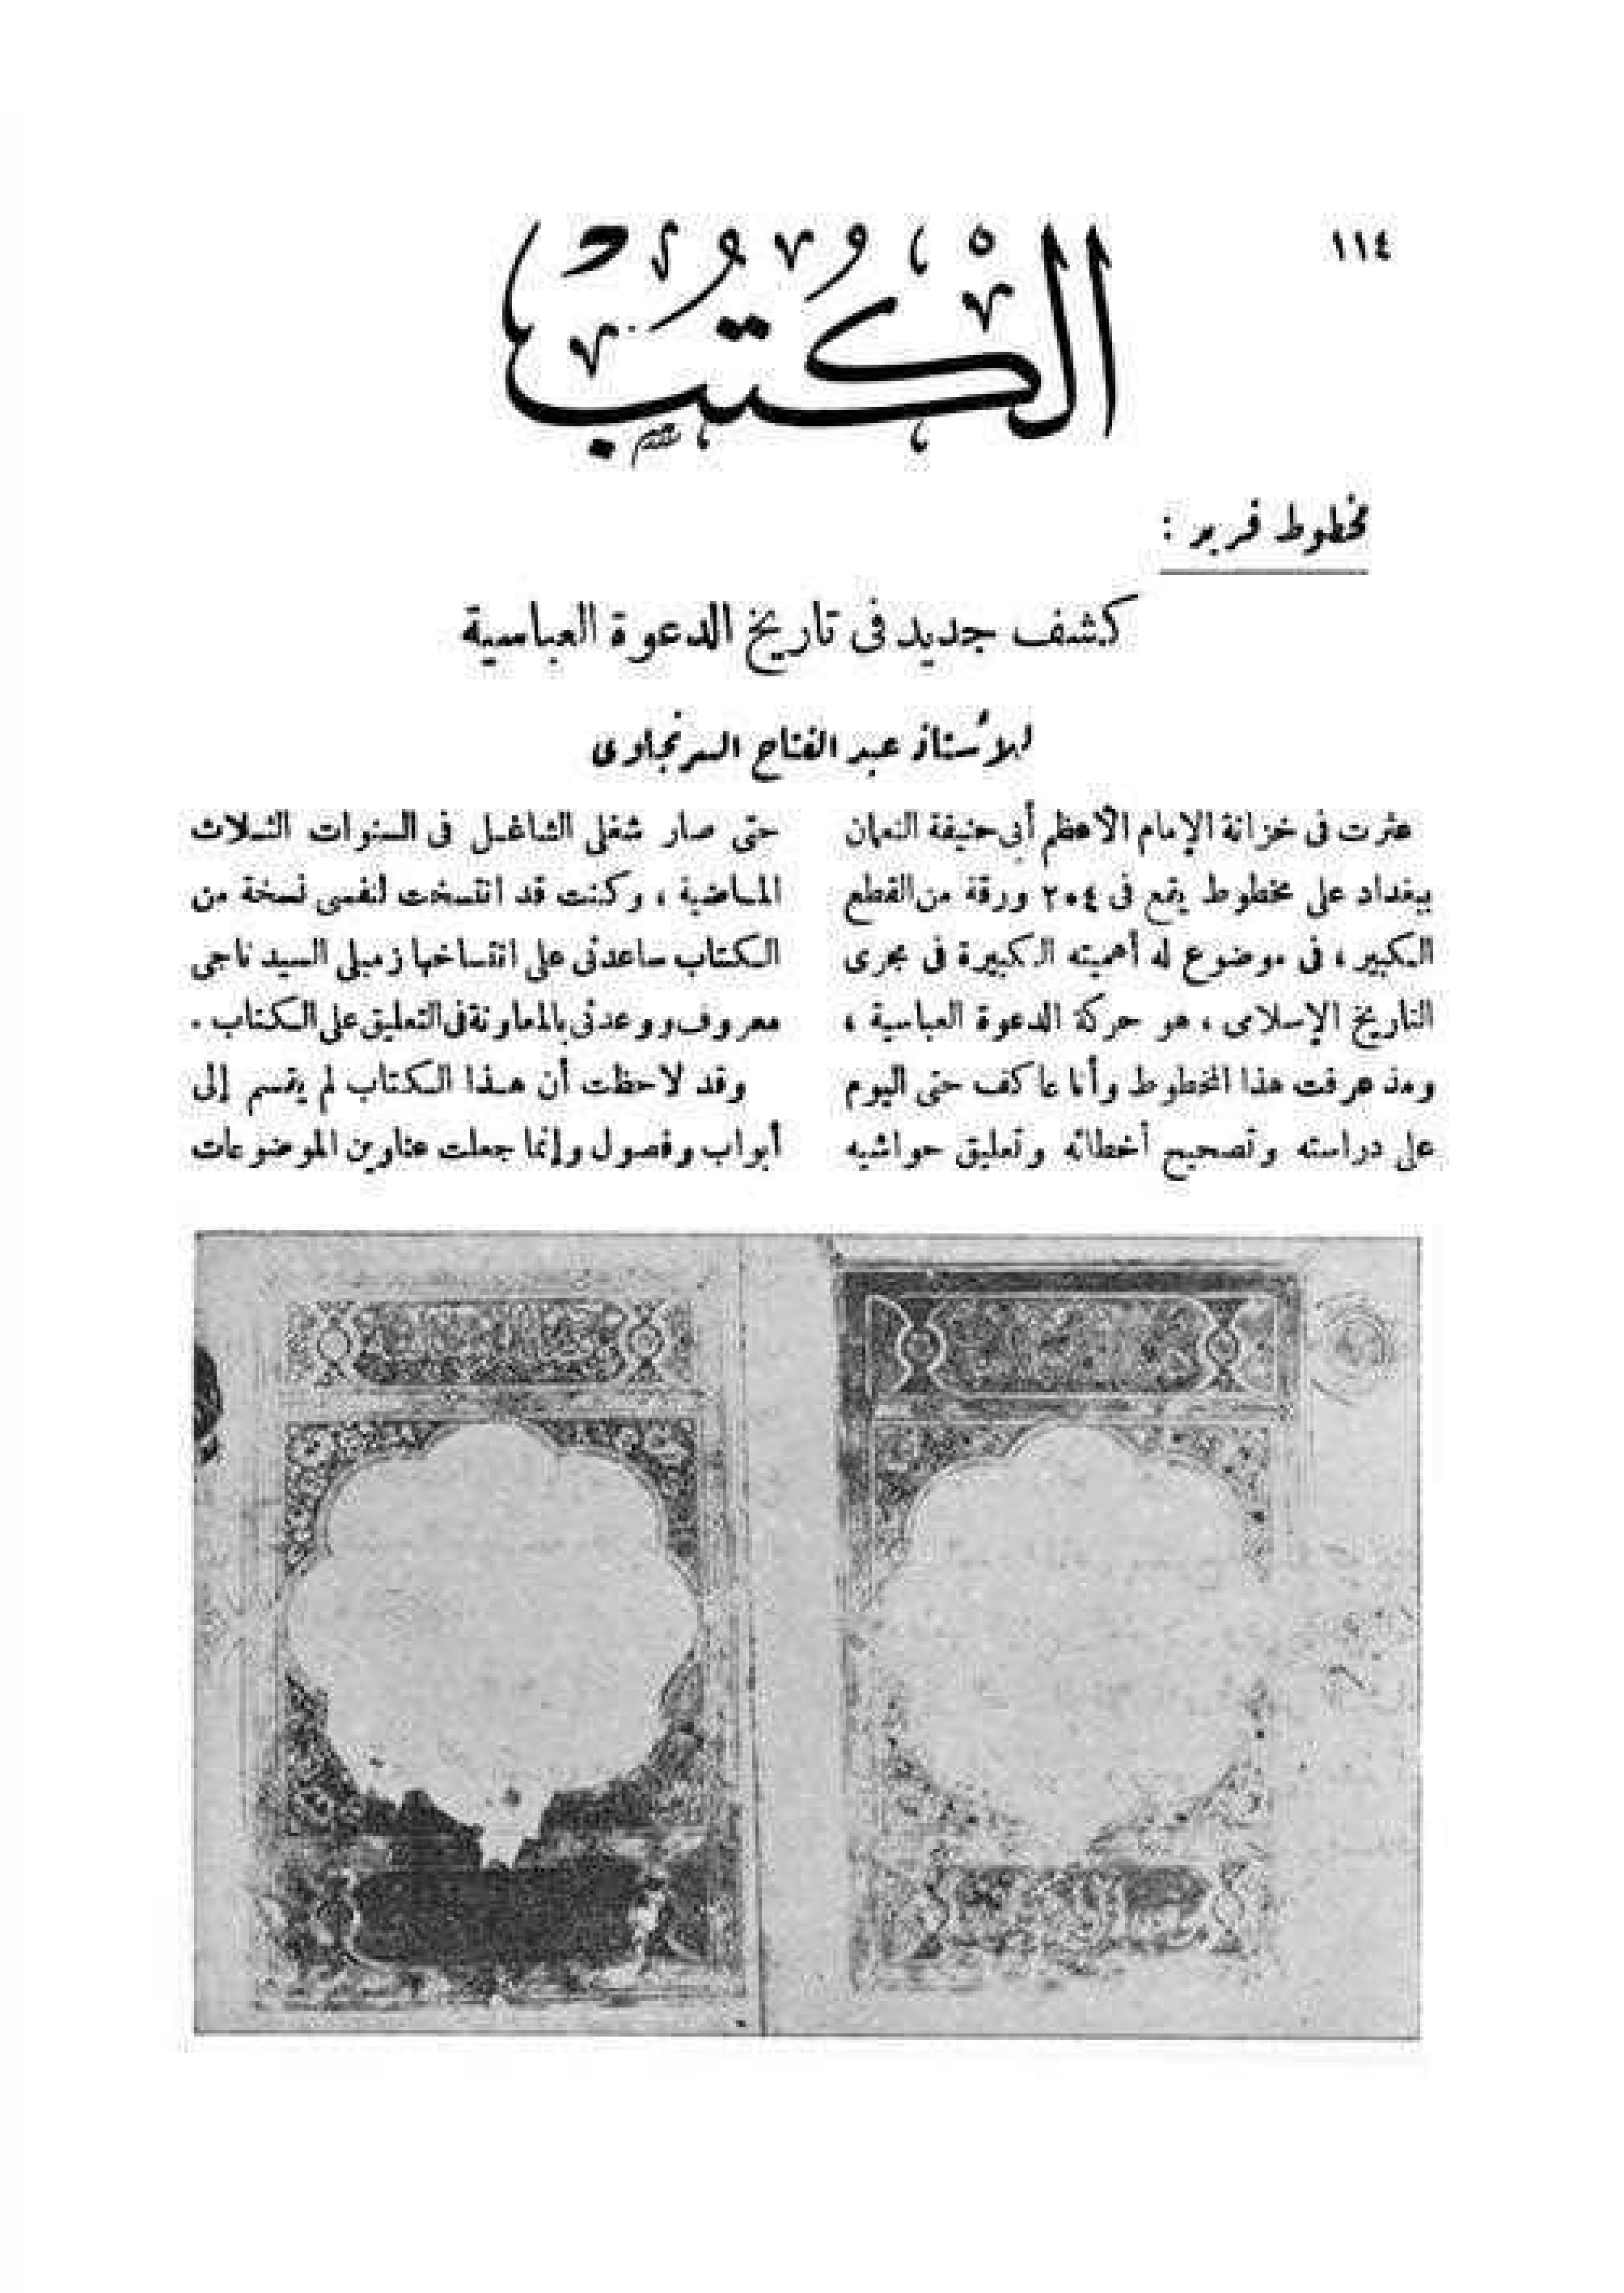 ١١٤
الكتب
مخطوط فريد :
كشف جديد فى تاريخ الدعوة العباسية
للأستاذ عبد الفتاح السرنجاوى
عثرت فى خزانة الإمام الأعظم أبى حنيفة النعمان
ببغداد على مخطوط يقع فى ٢٠٤ ورقة من القطع
الكبير ، فى موضوع له أهميته الكبيرة فى مجرى
التاريخ الإسلامى ، هو حركة الدعوة العباسية ،
ومذ عرفت هذا المخطوط وأنا عاكف حتى اليوم
على دراسته وتصحيح أخطائه وتعليق حواشيه
حتى صار شغلى الشاغل فى السنوات الثلاث
الماضية ، وكنت قد انتسخت لنفسى نسخة من
الكتاب ساعدنى على انتساخها زميلى السيد ناجى
معروف ووعدنى بالمعاونة فى التعليق على الكتاب .
وقد لاحظت أن هذا الكتاب لم يقسم إلى
أبواب وفصول وإنما جعلت عناوين الموضوعات